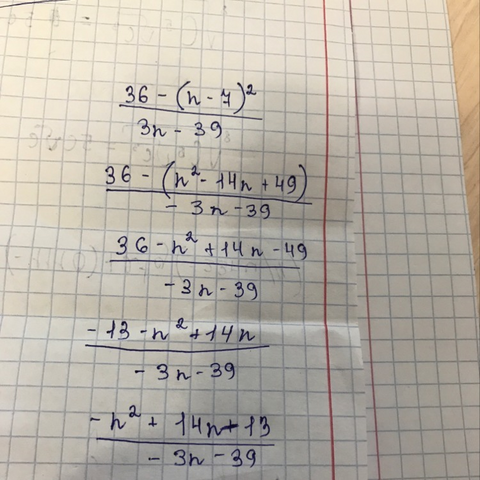 36 - (n - 7)²
3n - 39
36 - (n² - 14n + 49)
- 3n - 39
36 - n² + 14n - 49
- 3n - 39
- 13 - n² + 14n
- 3n - 39
- n² + 14n + 13
- 3n - 39